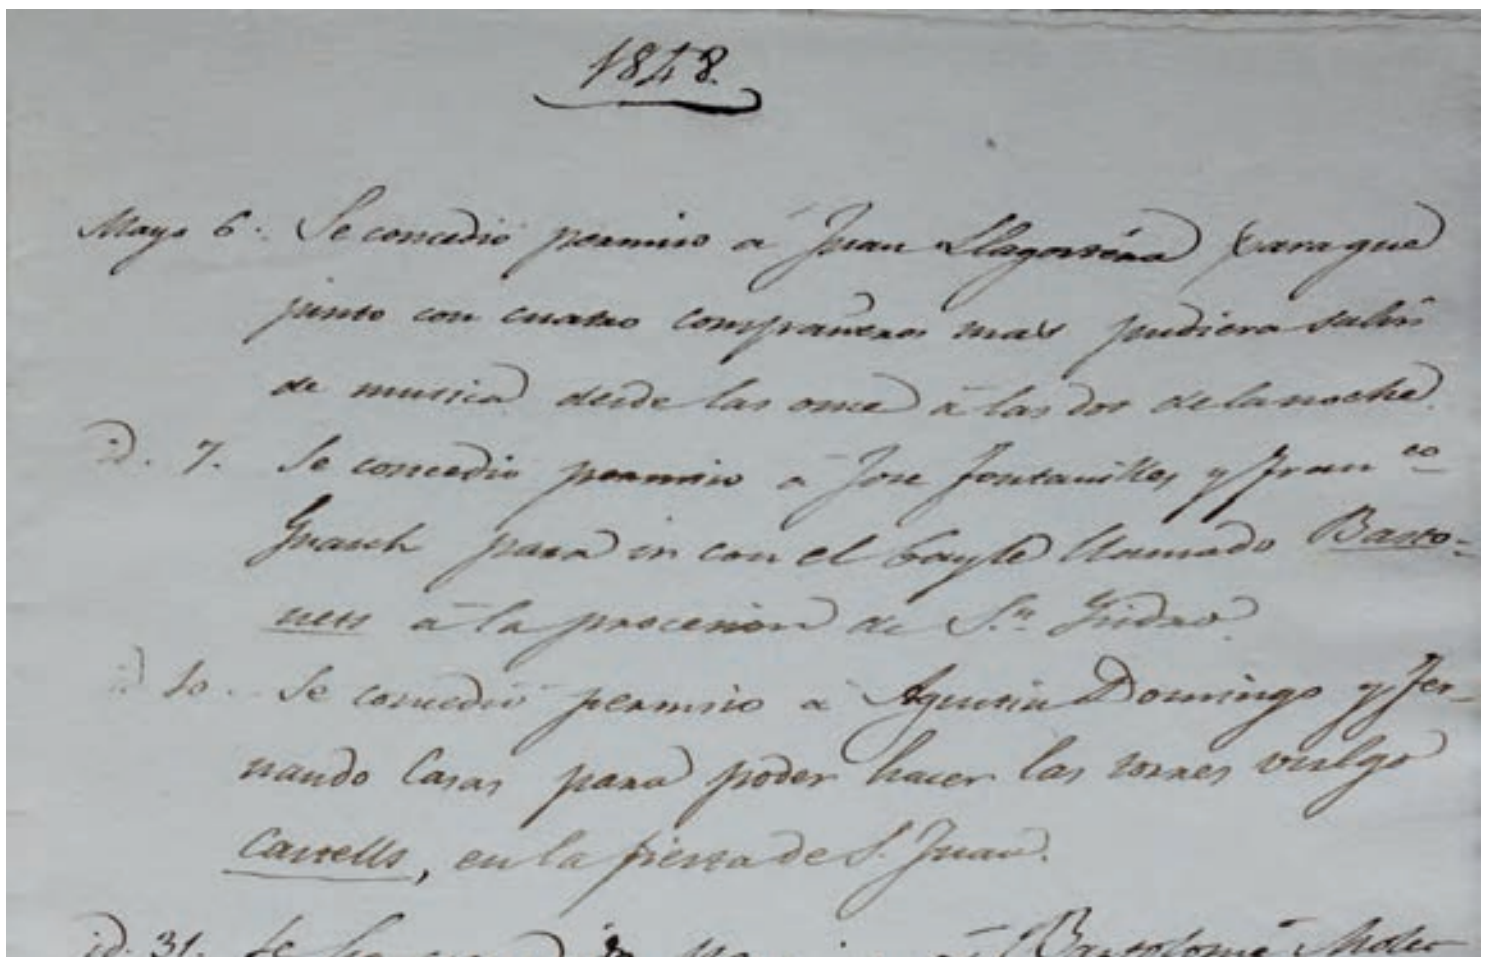 1848.
Mayo 6. Se concedio permiso a Juan Llagostera para que
junto con cuatro compañeros mas pudiera salir
de musica desde las once á las dos de la noche.
id. 7. Se concedio permiso a Jose Fontanilles y Fran.co
Guasch para ir con el bayle llamado Basto-
nets á la procesion de S.n Ysidro
id 10. Se concedio permiso a Agustin Domingo y Fer-
nando Casas para poder hacer las torres vulgo
Castells, en la fiesta de S. Juan.
id. 31. Se á Bartolomé